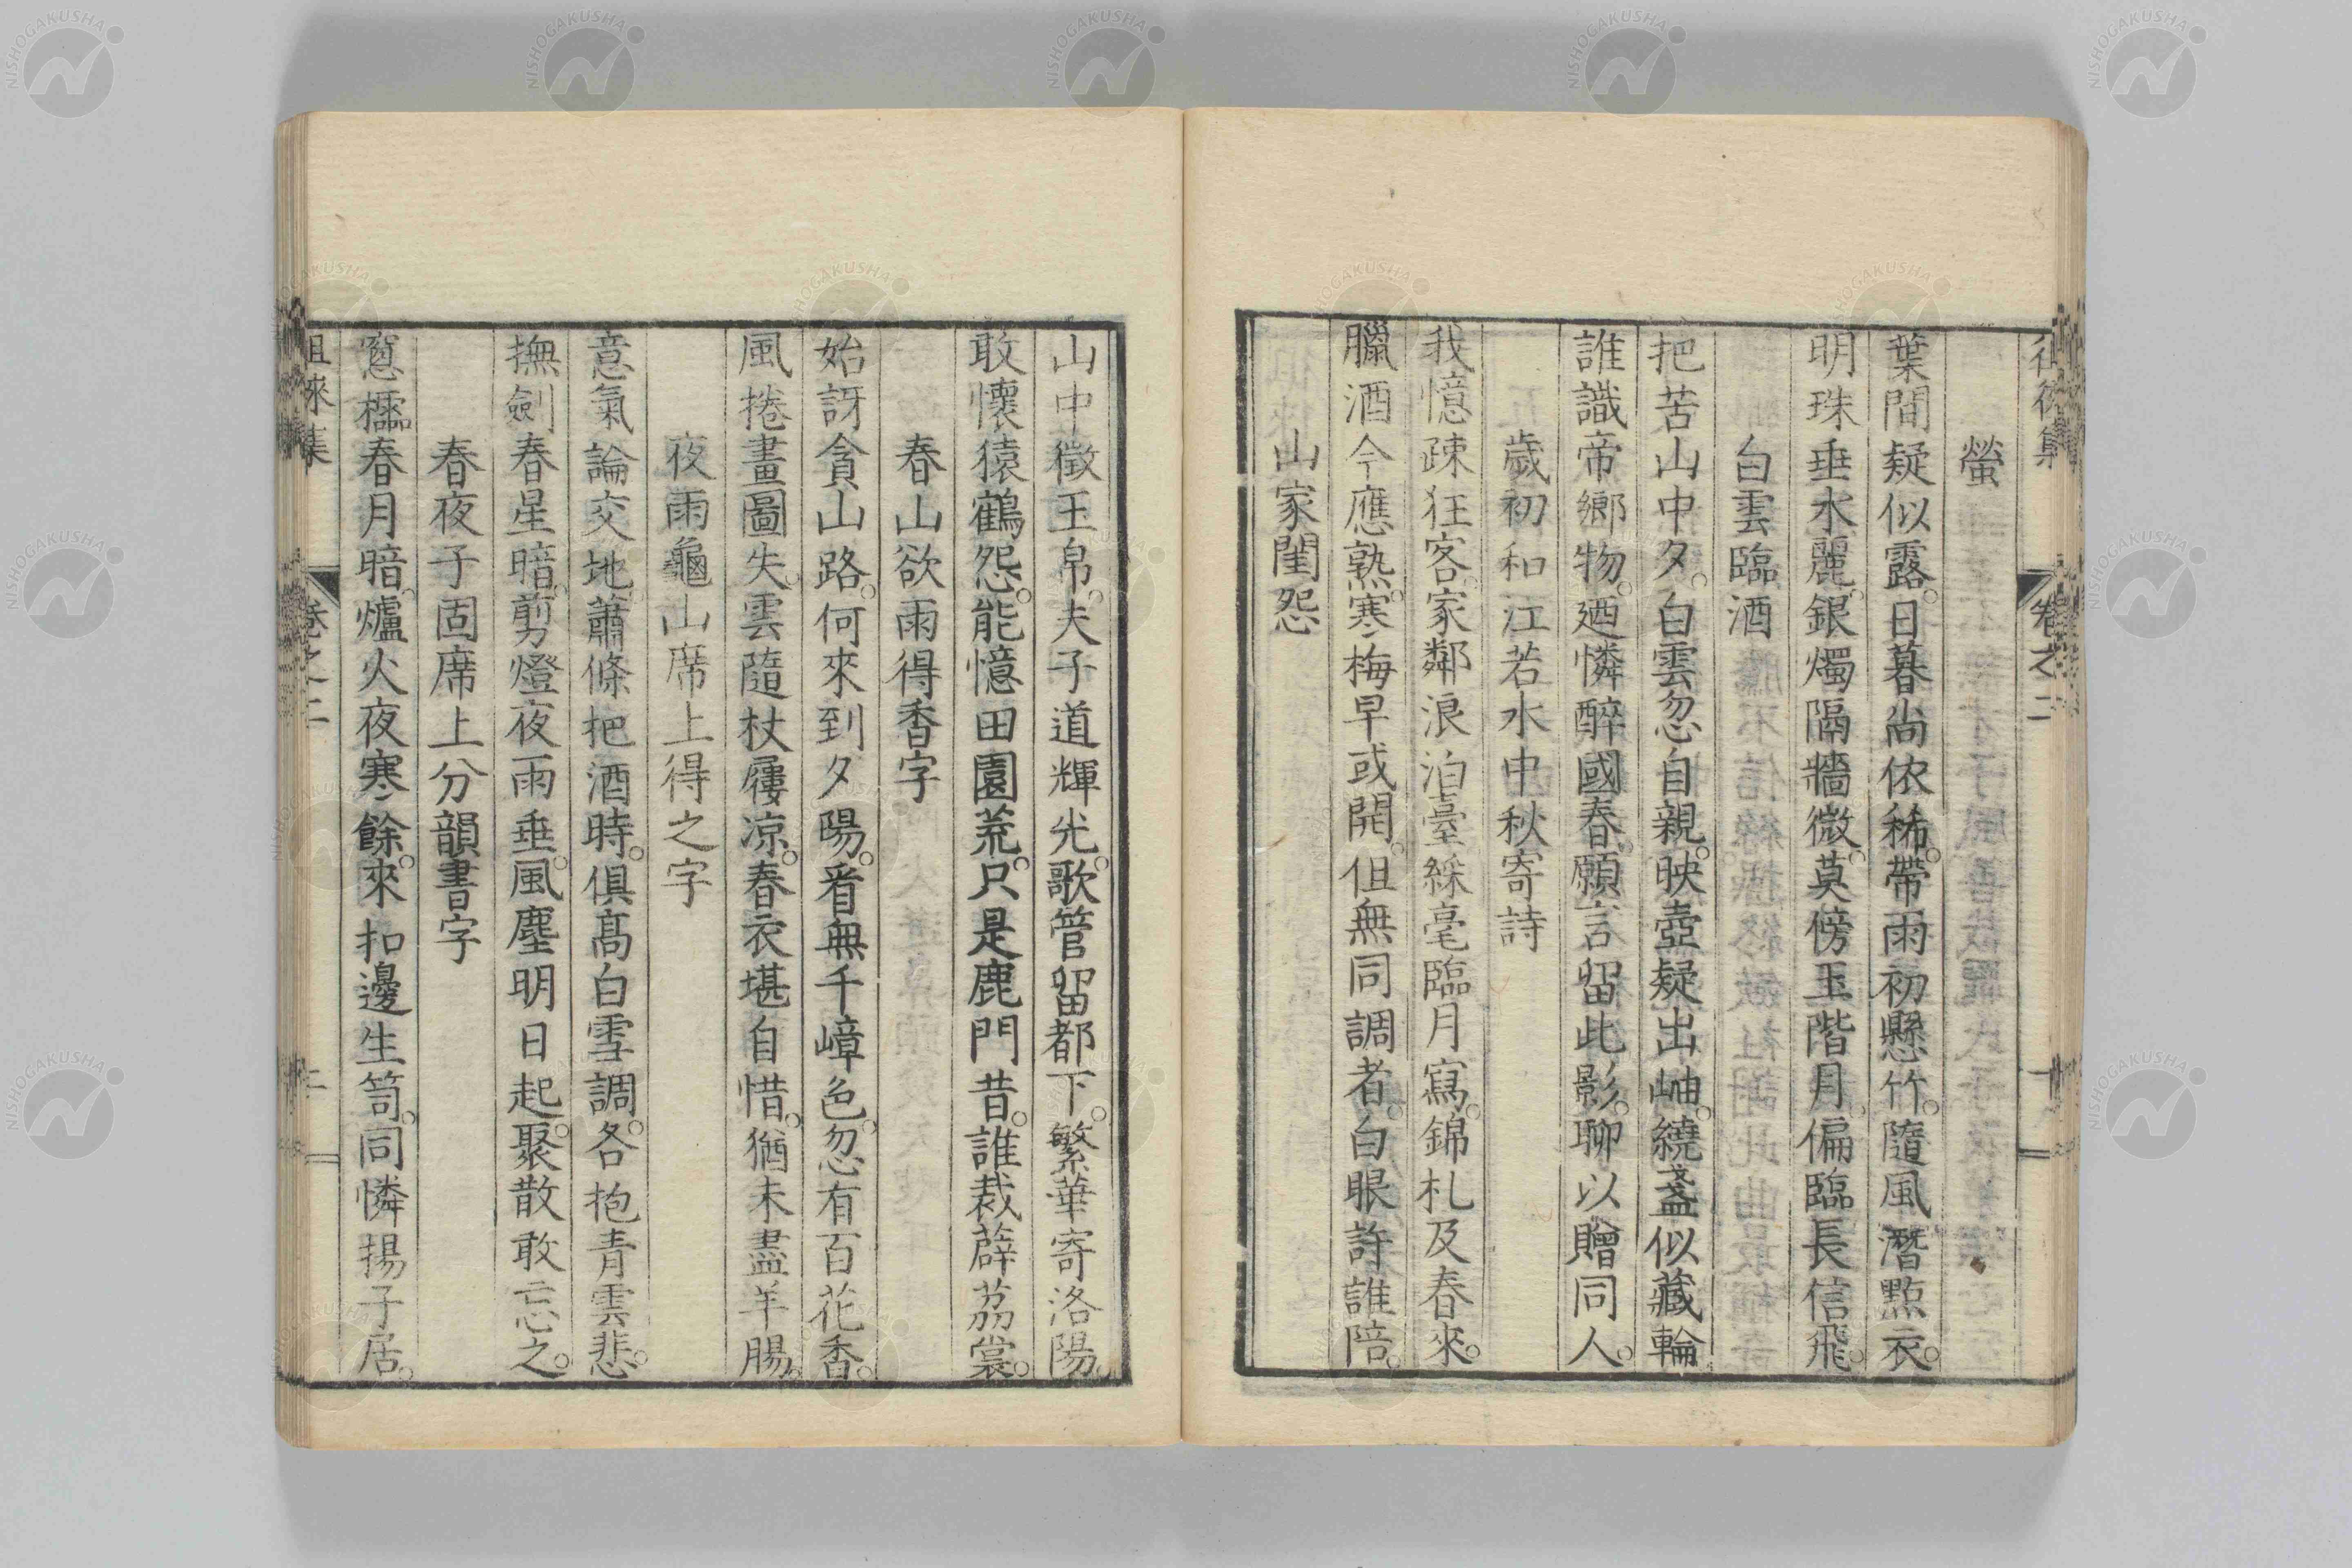 螢
葉間疑似露。日暮尚依稀。帶雨初懸竹。隨風潛點衣。
明珠垂水麗。銀燭隔牆微。莫傍玉階月。偏臨長信飛。
白雲臨酒
把苦山中夕。白雲忽自親。映壺疑出岫。繞盞似藏輪
誰識帝鄉物。迺憐醉國春。願言留此影。聊以贈同人。
歲初和江若水中秋寄詩
我憶疎狂客。家鄰浪泊臺。綵毫臨月寫。錦札及春來。
臘酒今應熟。寒梅早或開。但無同調者。白眼許誰陪。
山家閨怨
山中徵玉帛。夫子道輝光。歌管留都下。繁華寄洛陽。
敢懷猿鶴怨。能憶田園荒。只是鹿門昔。誰裁薜荔裳。
春山欲雨得香字
始訝貪山路。何來到夕陽。看無千嶂色。忽有百花香。
風捲畫圖失。雲隨杖屨凉。春衣堪自惜。猶未盡羊腸。
夜雨龜山席上得之字
意氣論交地。蕭條把酒時。俱高白雪調。各抱青雲悲。
撫劍春星暗。剪燈夜雨垂。風塵明日起。聚散敢忘之。
春夜子固席上分韻書字
窻櫺春月暗。爐火夜寒餘。來扣邊生笥。同憐揚子居。
徂徠集
卷之二
二
NISHOGAKUSHA